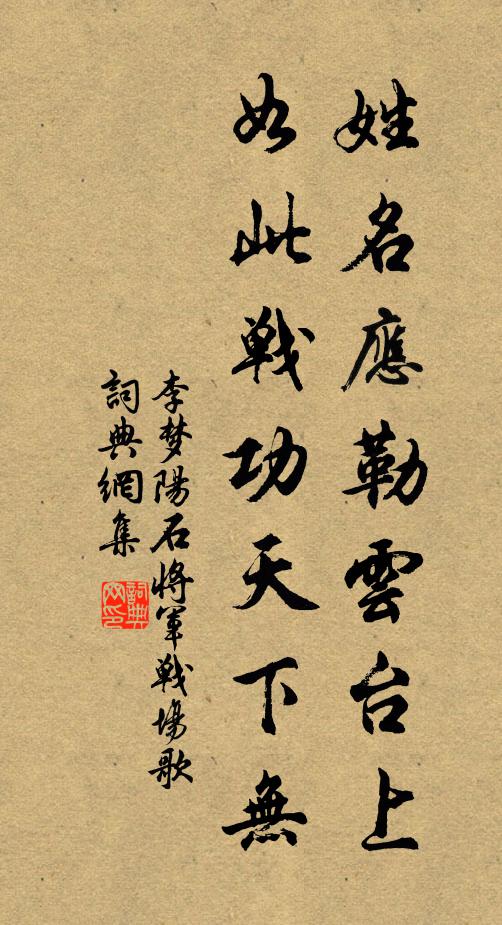 姓名應勒雲台上
如此戦功天下無
李梦陽石將軍戦場歌
詞典網集
詞典网印